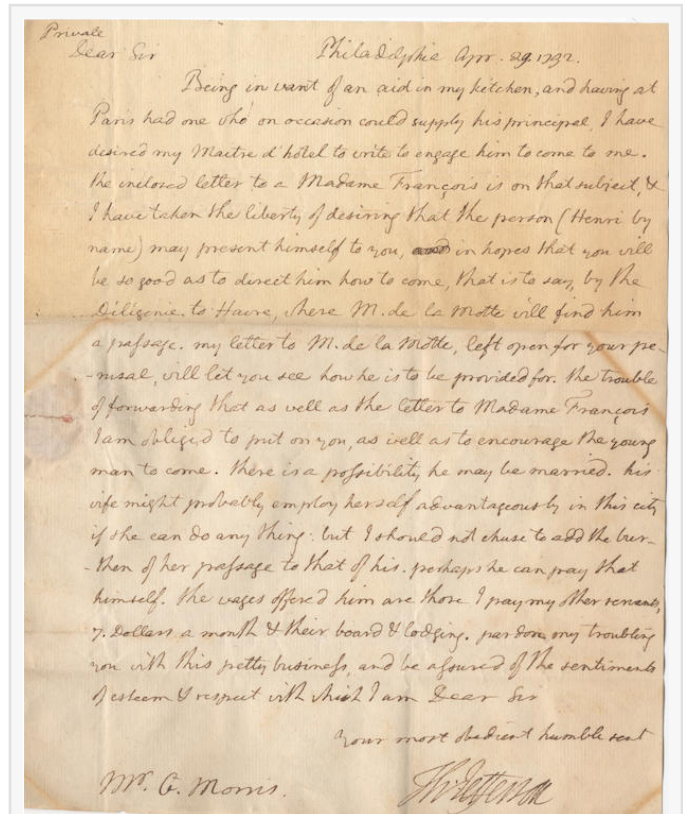 Private
Dear Sir Philadelphia Apr. 29. 1792.
Being in want of an aid in my kitchen, and having at
Paris had one who on occasion could supply his principal, I have
desired my Maitre d'hotel to write to engage him to come to me.
the inclosed letter to a Madame François is on that subject, &
I have taken the liberty of desiring that the person (Henri by
name) may present himself to you, in hopes that you will
be so good as to direct him how to come, that is to say, by the
Diligence to Havre, where M. de la Motte will find him
a passage. my letter to M. de la Motte, left open for your pe-
-rusal, will let you see how he is to be provided for. the trouble
of forwarding that as well as the letter to Madame François
I am obliged to put on you, as well as to encourage the young
man to come. there is a possibility he may be married. his
wife might probably employ herself advantageously in this city
if she can do any thing: but I should not chuse to add the bur-
-then of her passage to that of his. perhaps he can pay that
himself. the wages offered him are those I pay my other servants,
7. Dollars a month & their board & lodging. pardon my troubling
you with this petty business, and be assured of the sentiments
of esteem & respect with which I am Dear Sir
your most obedient humble servt
Mr. G. Morris. Th: Jefferson